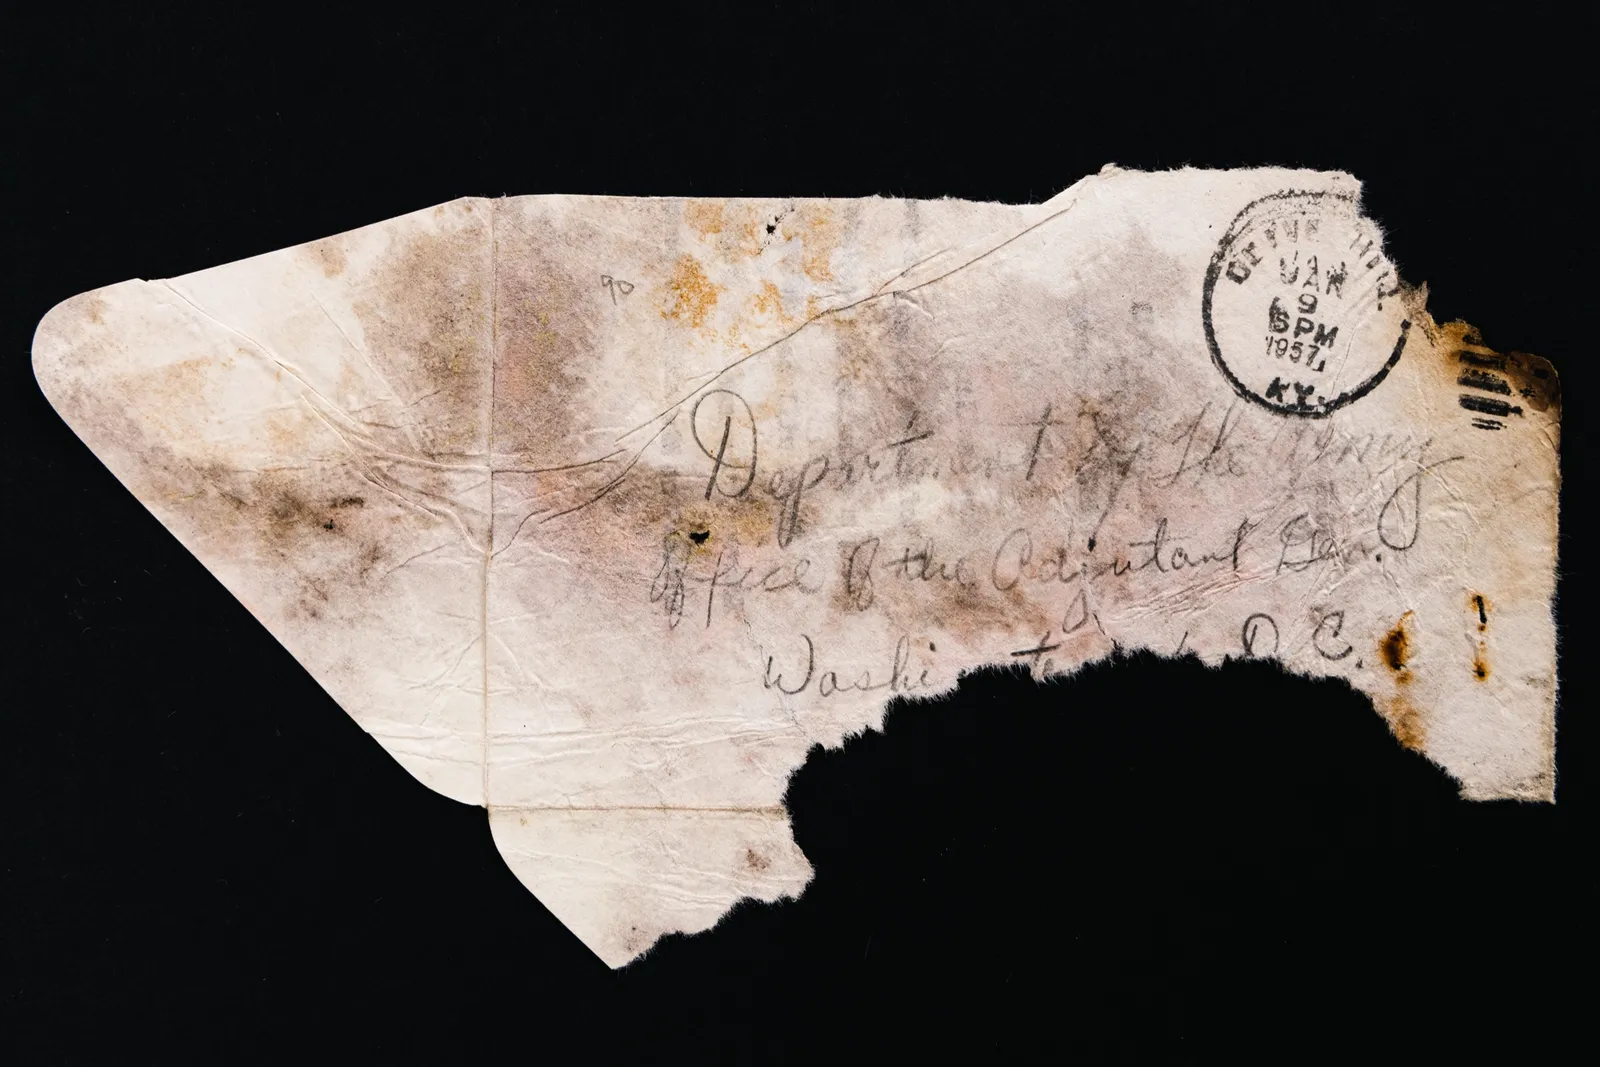 90
JAN
9
6 PM
1957
KY.
Department of the Army
Office Of the Adjutant Gen.
D. C.